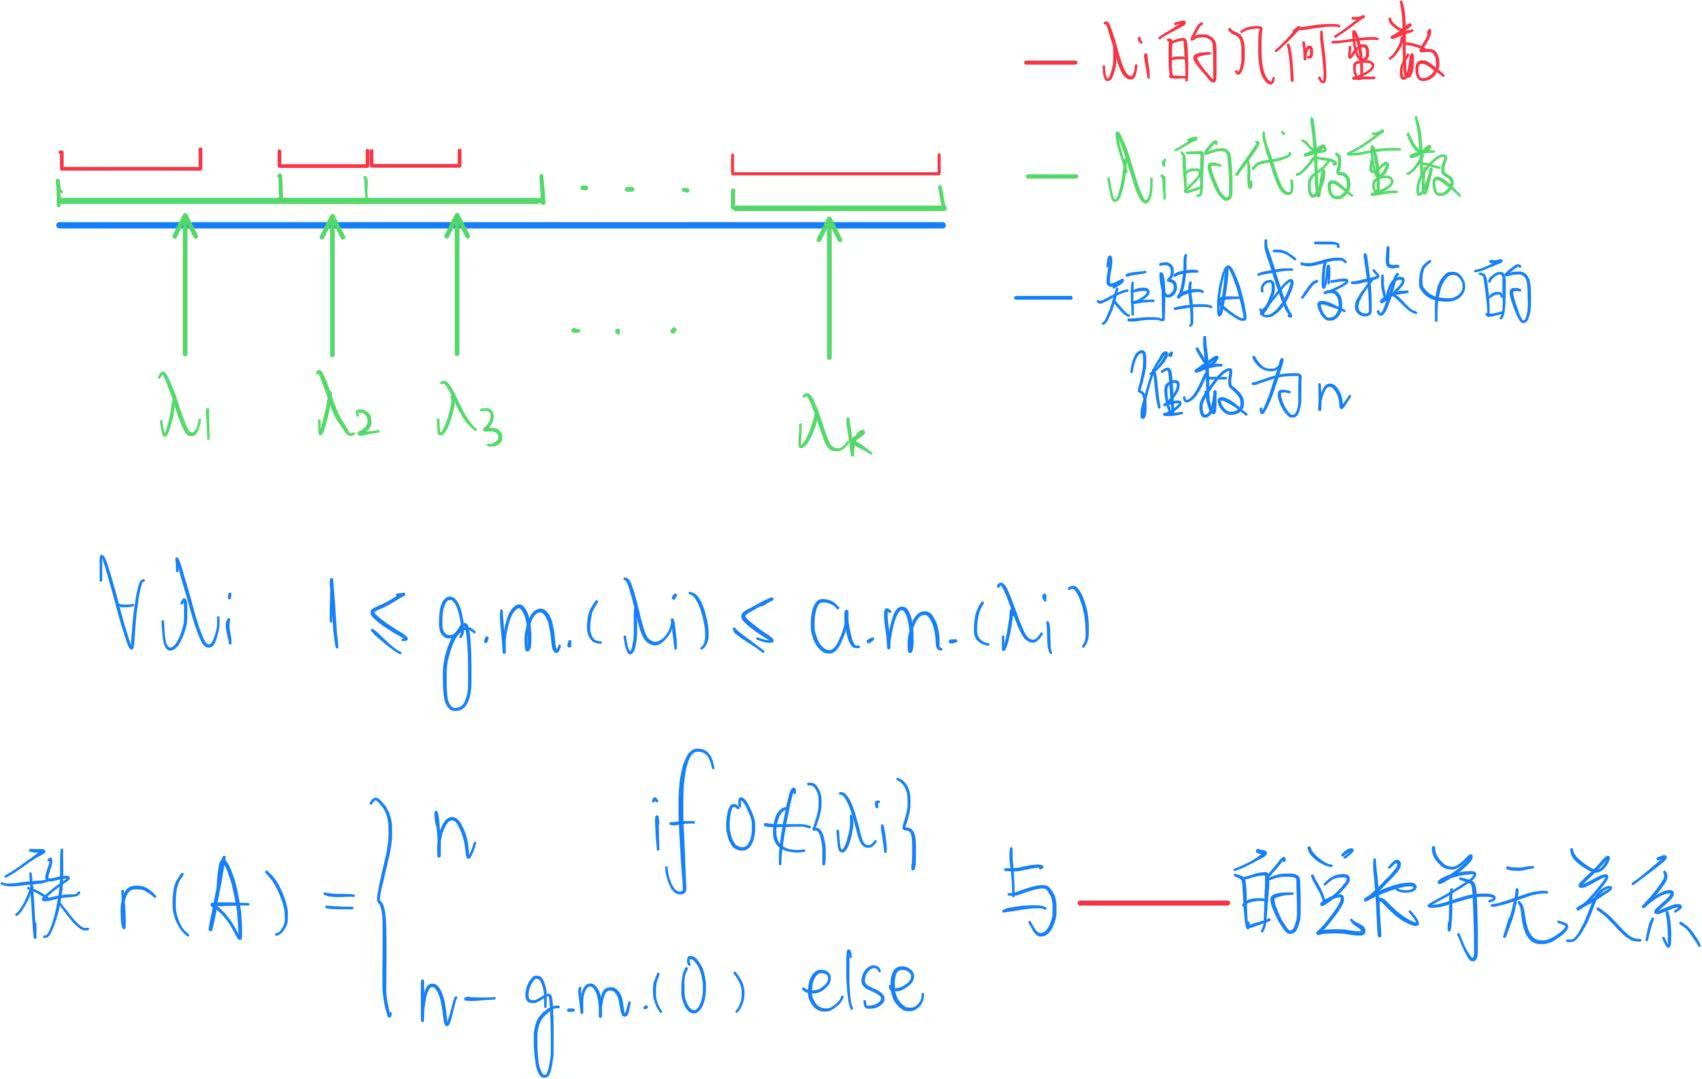 — λi的几何重数
— λi的代数重数
— 矩阵A或变换φ的
维数为n
· · ·
· · ·
λ1 λ2 λ3 λk
∀λi 1 ≤ g.m.(λi) ≤ a.m.(λi)
秩 r(A) = { n if 0∉{λi}
n - g.m.(0) else
与 —— 的总长并无关系